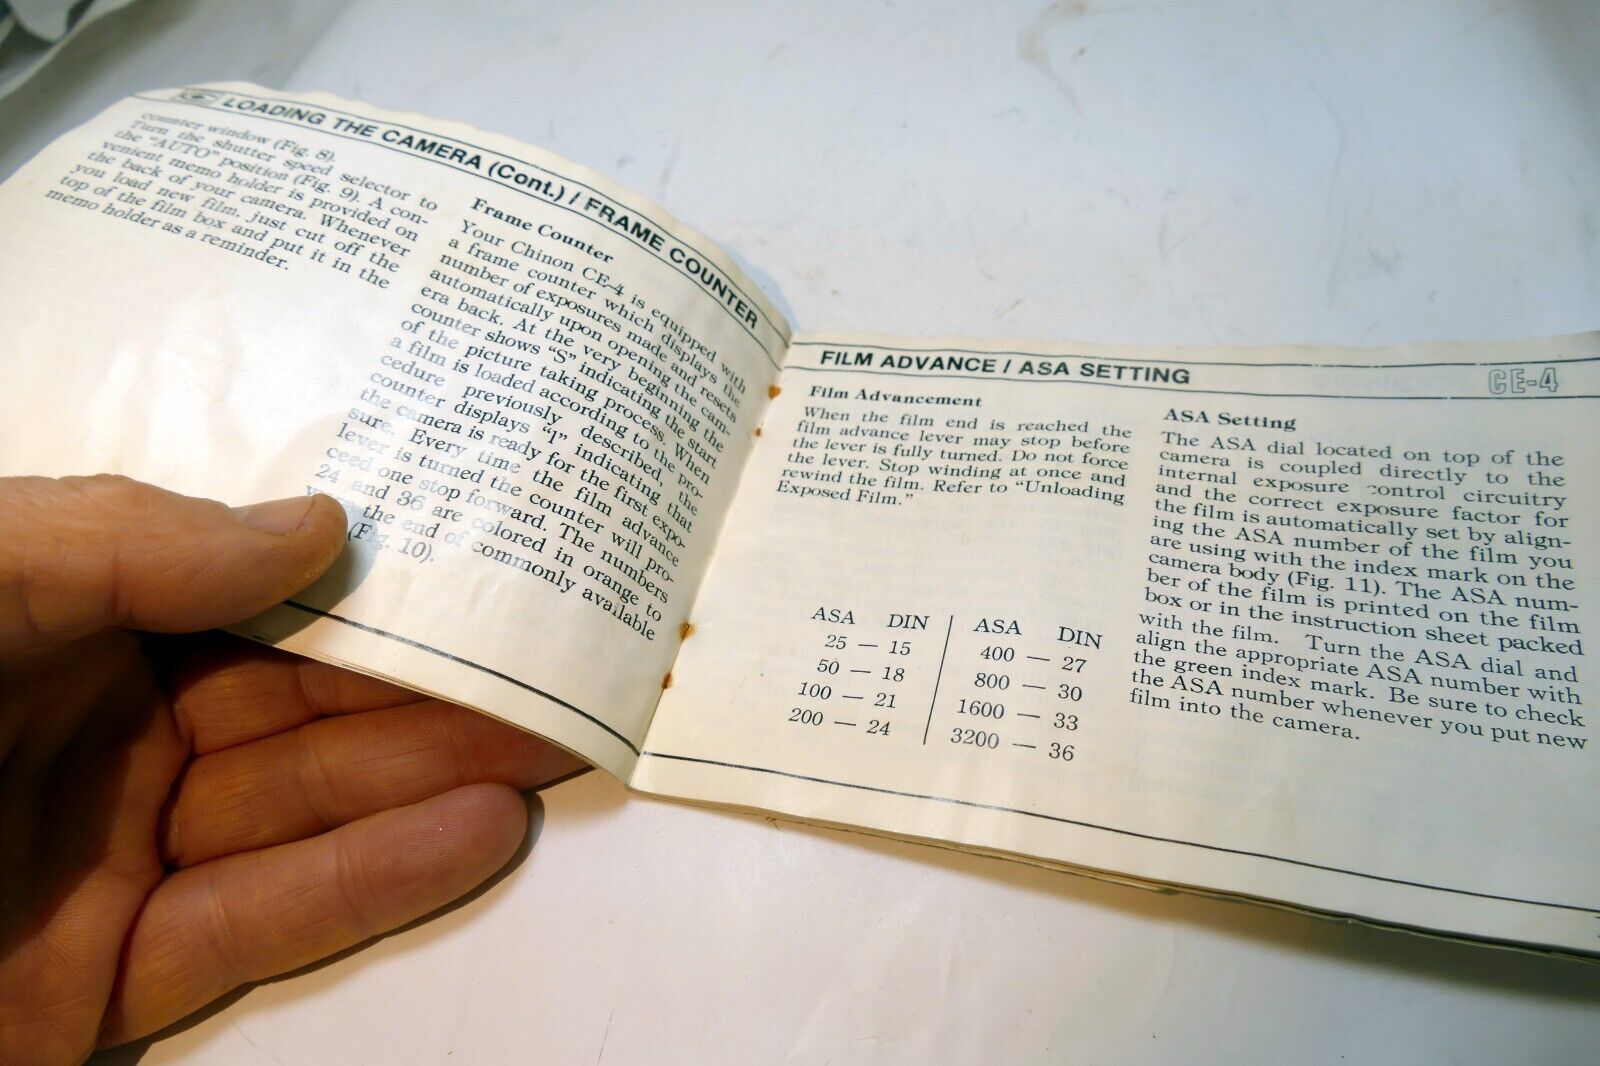 LOADING THE CAMERA (Cont.) / FRAME COUNTER
counter window (Fig. 8).
Turn the shutter speed selector to
the "AUTO" position (Fig. 9). A con-
venient memo holder is provided on
the back of your camera. Whenever
you load new film, just cut off the
top of the film box and put it in the
memo holder as a reminder.
Frame Counter
Your Chinon CE-4 is equipped with
a frame counter which displays the
number of exposures made and resets
automatically upon opening the cam-
era back. At the very beginning the
counter shows "S" indicating the start
of the picture taking process. When
a film is loaded according to the pro-
cedure previously described, the
counter displays "1" indicating that
the camera is ready for the first expo-
sure. Every time the film advance
lever is turned the counter will pro-
ceed one stop forward. The numbers
24 and 36 are colored in orange to
the end of commonly available
(Fig. 10).
FILM ADVANCE / ASA SETTING
CE-4
Film Advancement
When the film end is reached the
film advance lever may stop before
the lever is fully turned. Do not force
the lever. Stop winding at once and
rewind the film. Refer to "Unloading
Exposed Film."
ASA DIN ASA DIN
25 — 15 400 — 27
50 — 18 800 — 30
100 — 21 1600 — 33
200 — 24 3200 — 36
ASA Setting
The ASA dial located on top of the
camera is coupled directly to the
internal exposure control circuitry
and the correct exposure factor for
the film is automatically set by align-
ing the ASA number of the film you
are using with the index mark on the
camera body (Fig. 11). The ASA num-
ber of the film is printed on the film
box or in the instruction sheet packed
with the film. Turn the ASA dial and
align the appropriate ASA number with
the green index mark. Be sure to check
the ASA number whenever you put new
film into the camera.